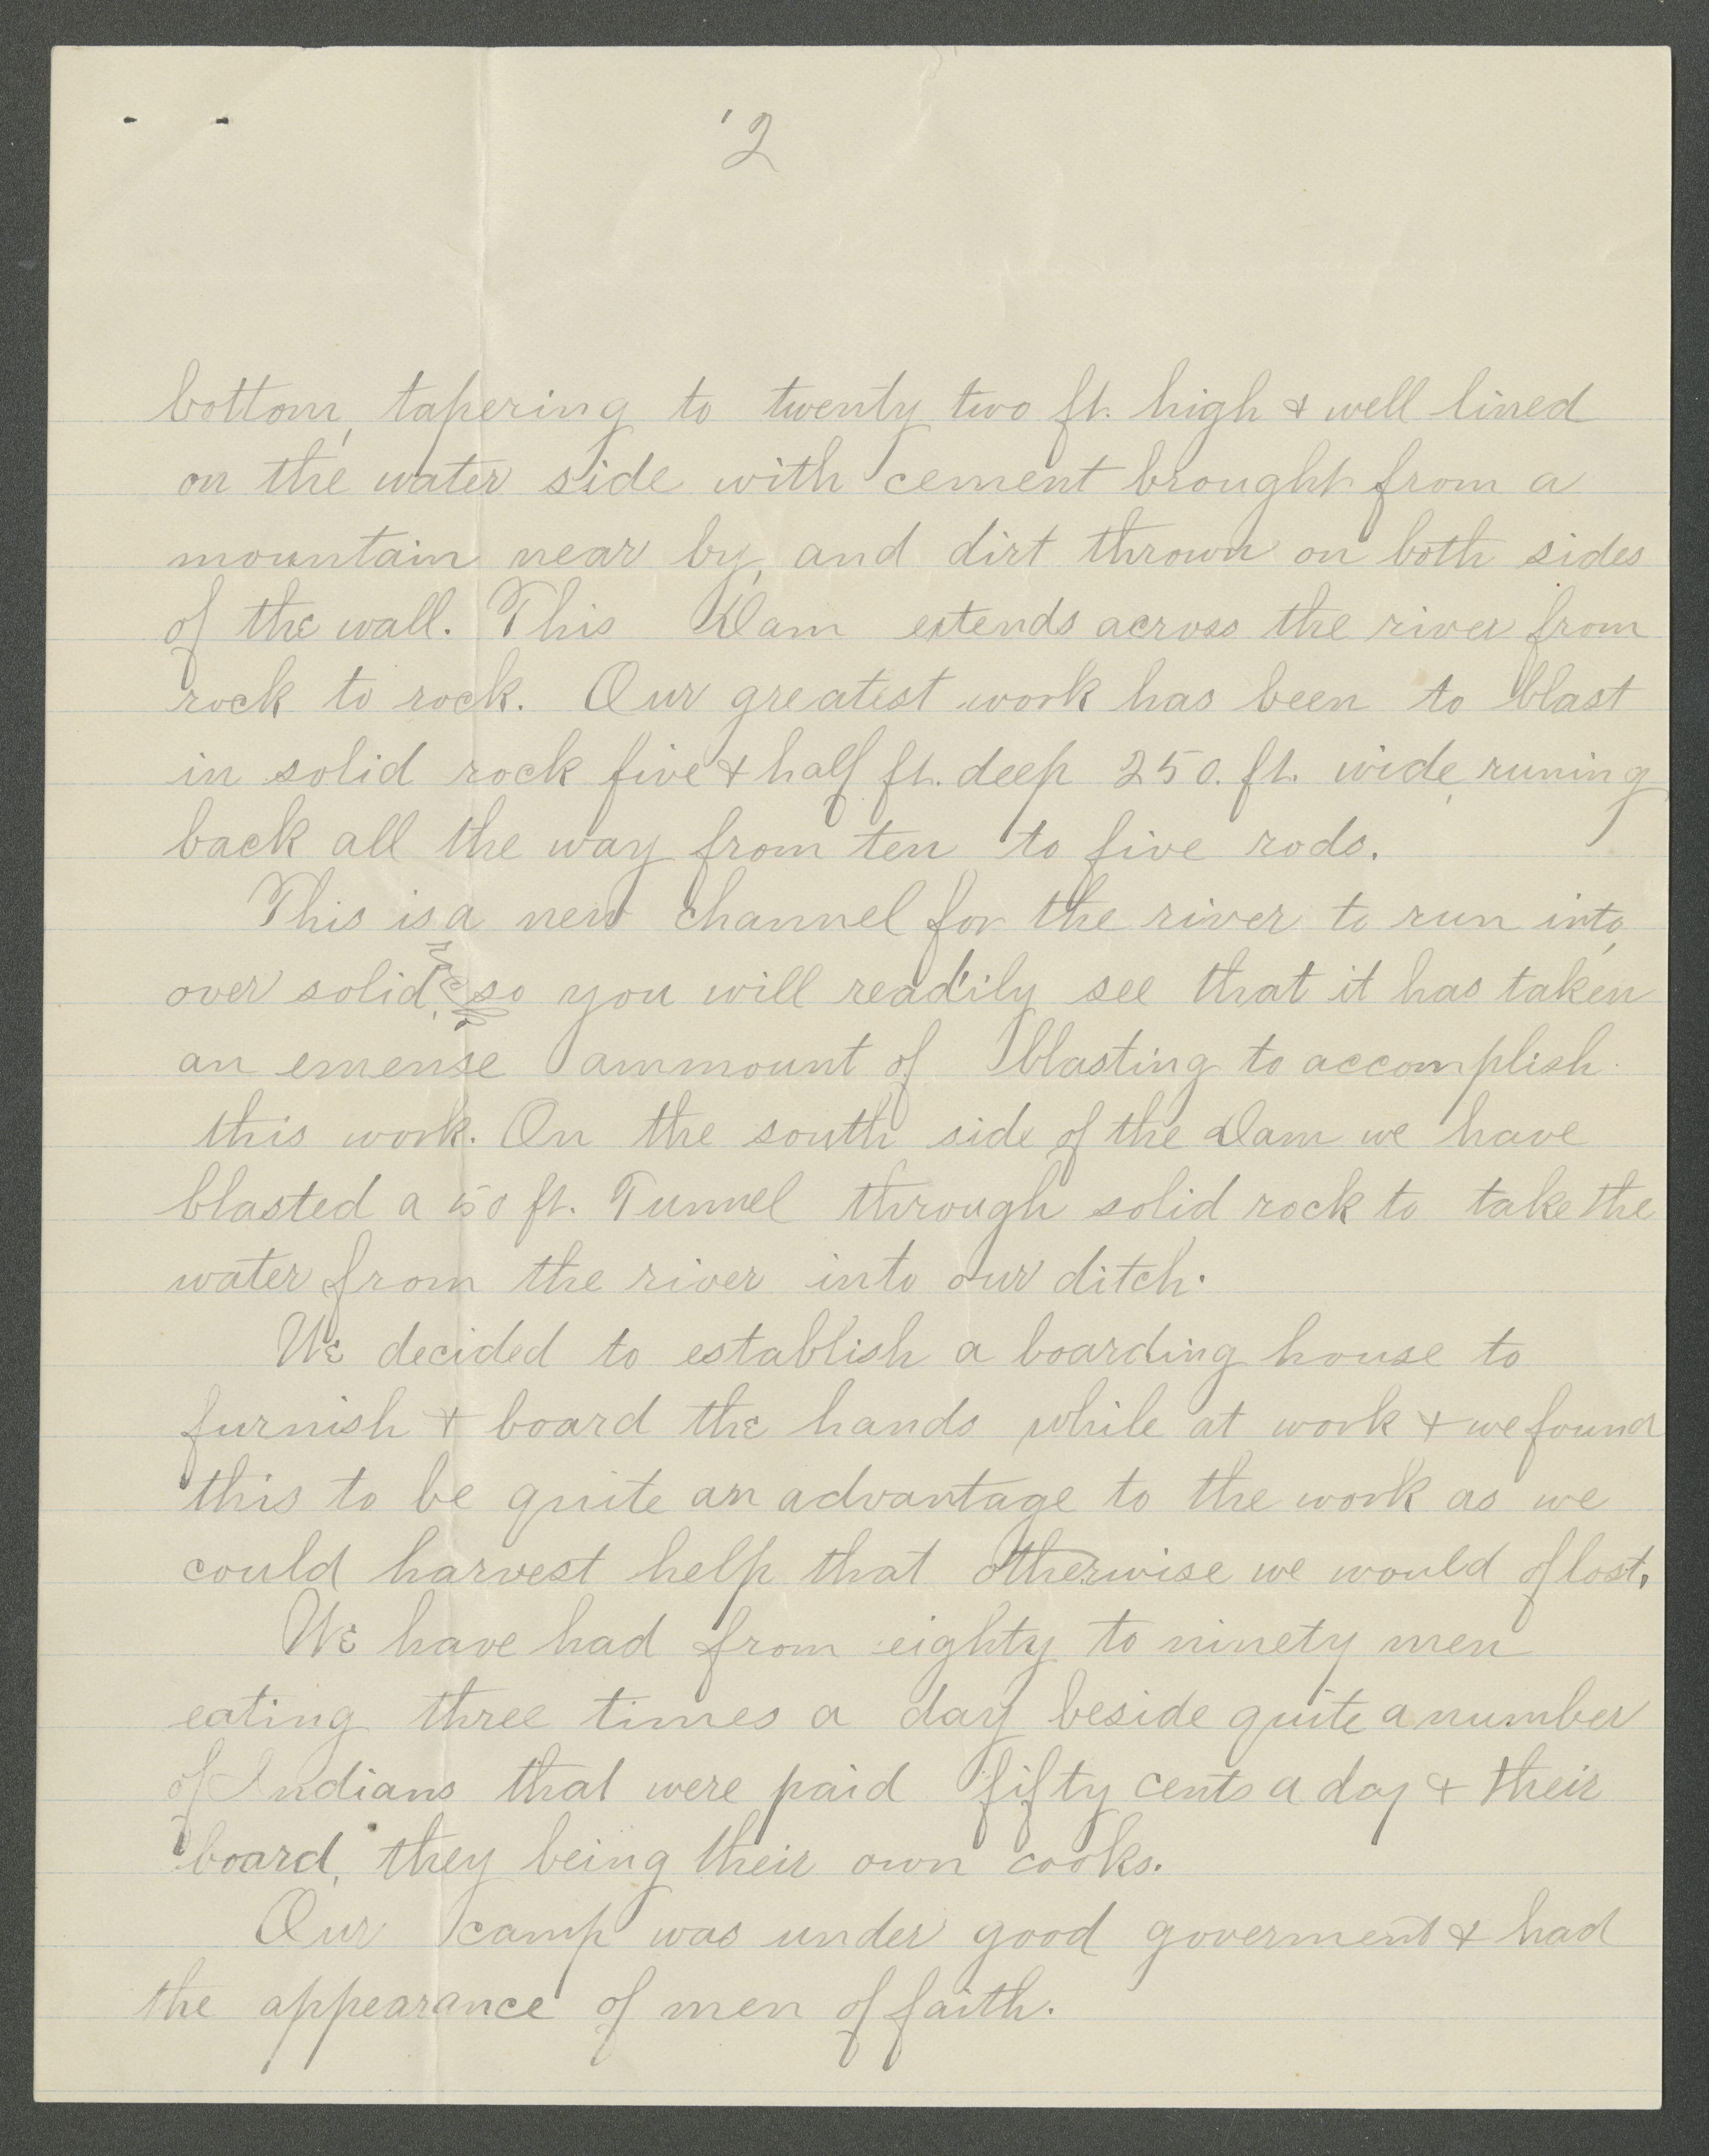 '2
bottom, tapering to twenty two ft. high & well lined
on the water side with cement brought from a
mountain near by, and dirt thrown on both sides
of the wall. This Dam extends across the river from
rock to rock. Our greatest work has been to blast
in solid rock five & half ft. deep 250. ft. wide, runing
back all the way from ten to five rods.
This is a new channel for the river to run into,
over solid, so you will readily see that it has taken
an emense ammount of blasting to accomplish
this work. On the south side of the Dam we have
blasted a 50 ft. Tunnel through solid rock to take the
water from the river into our ditch.
We decided to establish a boarding house to
furnish & board the hands while at work & we found
this to be quite an advantage to the work as we
could harvest help that otherwise we would of lost.
We have had from eighty to ninety men
eating three times a day beside quite a number
of Indians that were paid fifty cents a day & their
board, they being their own cooks.
Our camp was under good goverment & had
the appearance of men of faith.